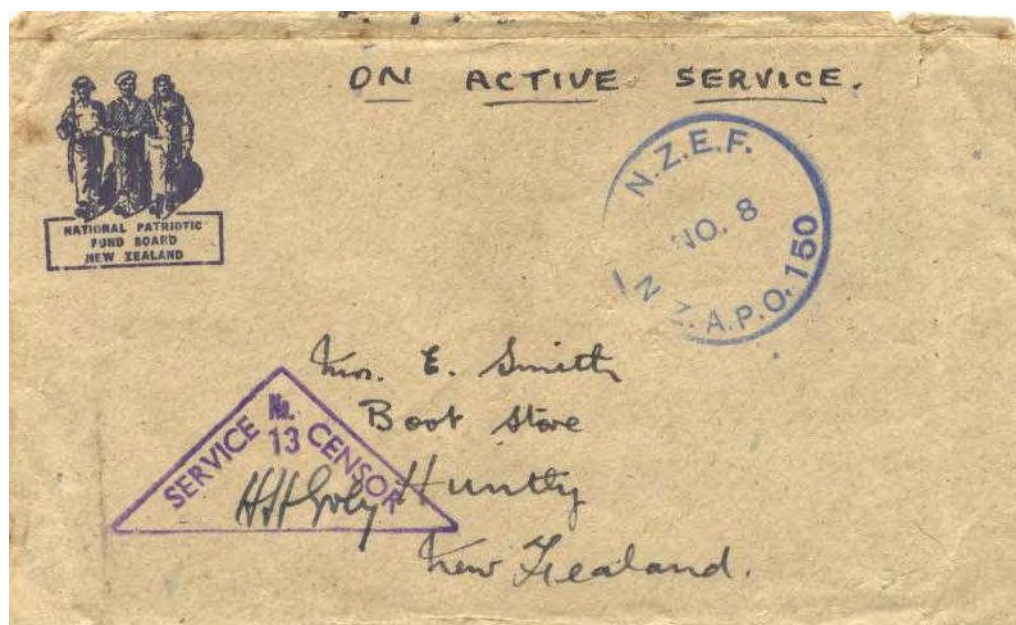 ON ACTIVE SERVICE.
NATIONAL PATRIOTIC
FUND BOARD
NEW ZEALAND
N.Z.E.F.
NO. 8
N.Z.A.P.O. 150
Mrs. E. Smith
Boot Store
Huntly
New Zealand.
No.
13
SERVICE CENSOR